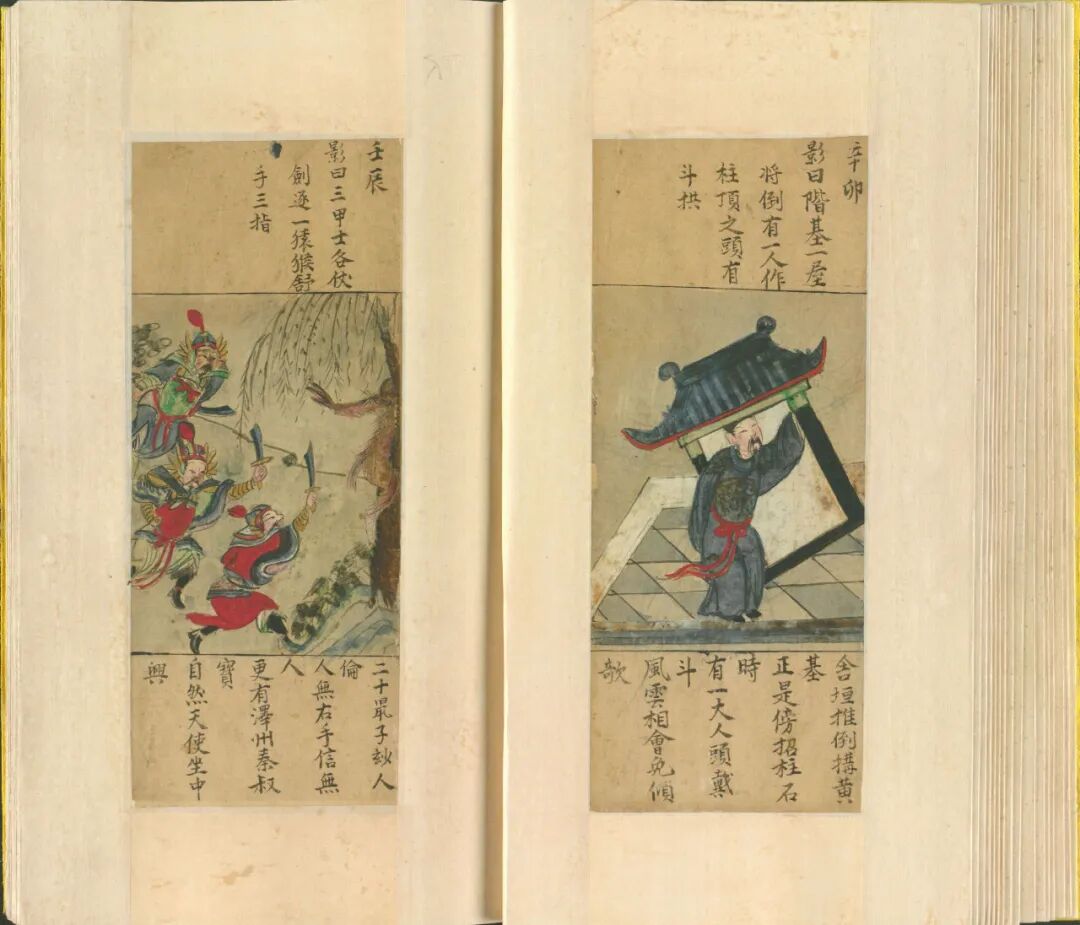 辛卯
影曰階基一屋
将倒有一人作
柱頂之頭有
斗拱
舍垣推倒搆黄
基
正是傍招柱石
時
有一大人頭戴
斗
風雲相會免傾
欹
壬辰
影曰三甲士各伏
劍逐一猿猴舒
手三指
二十㝡子玅人
倫
人無右手信無
人
更有澤州秦叔
寳
自然天使坐中
興